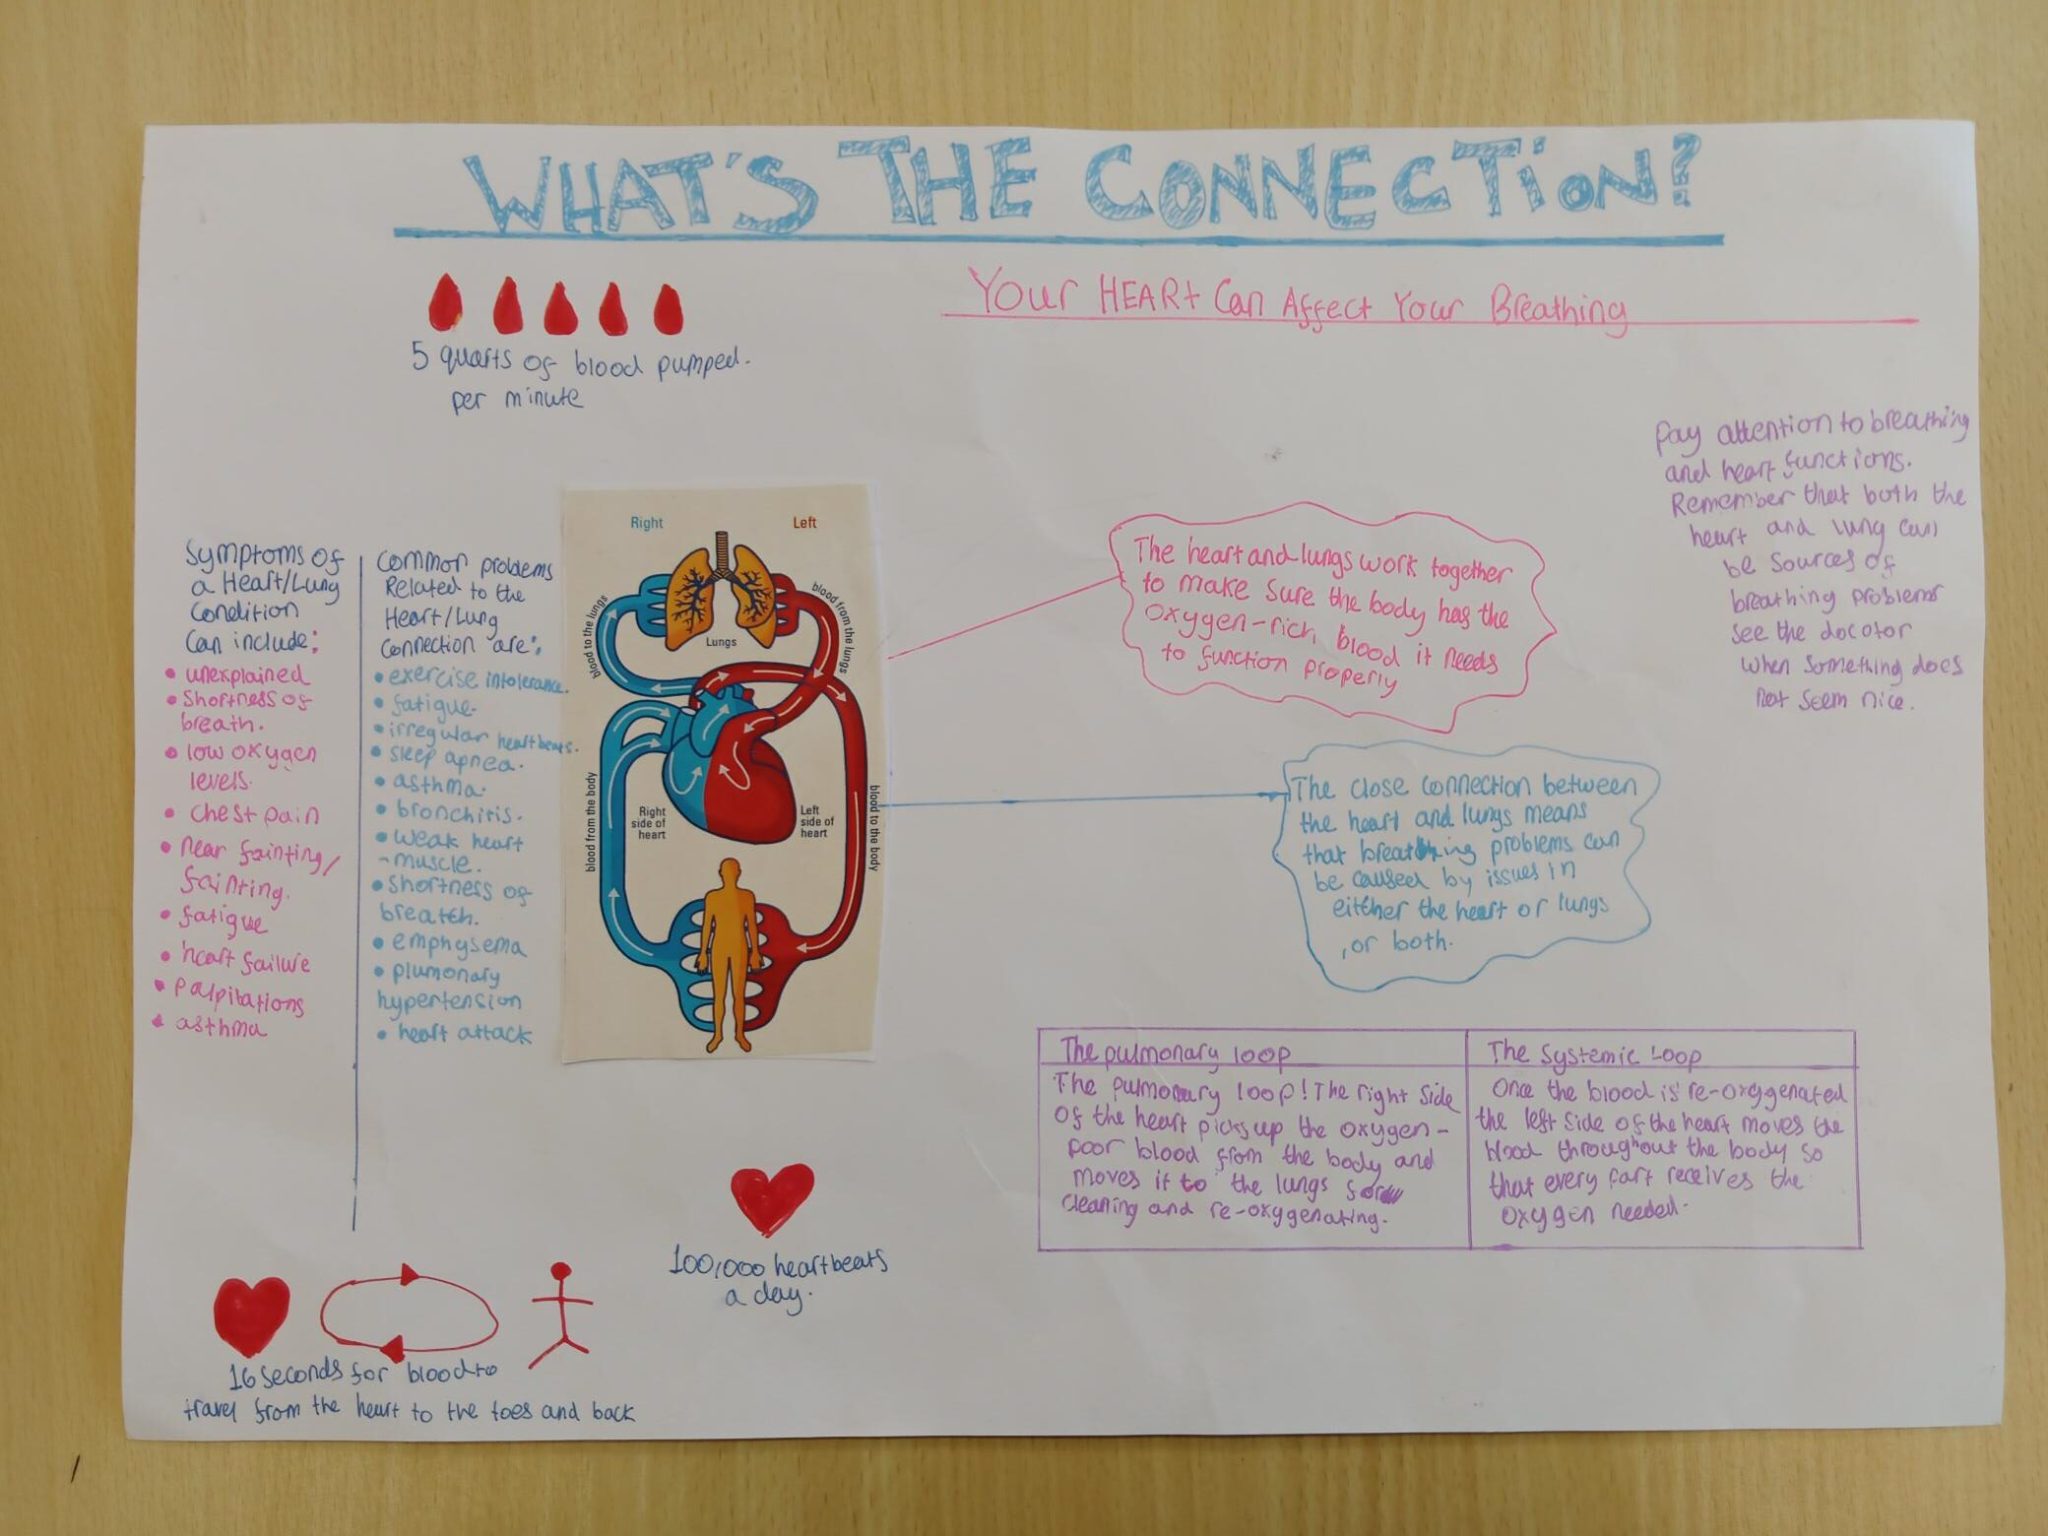 WHAT'S THE CONNECTiON?
Your HEART Can Affect Your Breathing
5 quarts of blood pumped.
per minute
Symptoms of
a Heart/Lung
Condition
Can include:
• unexplained
• Shortness of
breath.
• low oxygen
levels.
• chest pain
• near fainting/
fainting.
• fatigue
• heart failure
• palpitations
• asthma
Common problems
Related to the
Heart/Lung
Connection are:
• exercise intolerance.
• fatigue.
• irregular heartbeats.
• sleep apnea.
• asthma.
• bronchitis.
• weak heart
-muscle.
• shortness of
breath.
• emphysema
• plumonary
hypertension
• heart attack
Right
Left
blood to the lungs
blood from the lungs
Lungs
Right
side of
heart
Left
side of
heart
blood from the body
blood to the body
The heart and lungs work together
to make sure the body has the
oxygen-rich blood it needs
to function properly
The close connection between
the heart and lungs means
that breathing problems can
be caused by issues in
either the heart or lungs
, or both.
Pay attention to breathing
and heart functions.
Remember that both the
heart and lung can
be sources of
breathing problems
see the docotor
when something does
not seem nice.
The pulmonary loop
The pulmonary loop! The right side
of the heart picks up the oxygen-
poor blood from the body and
moves it to the lungs for
cleaning and re-oxygenating.
The systemic loop
Once the blood is re-oxygenated
the left side of the heart moves the
blood throughout the body so
that every part receives the
oxygen needed.
100,000 heartbeats
a day.
16 seconds for blood to
travel from the heart to the toes and back